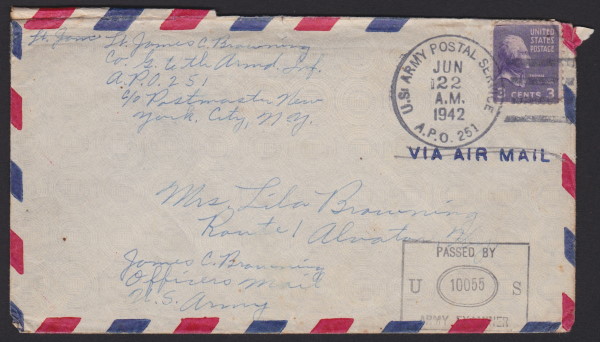 Lt. James
Lt. James C. Browning
Co. G. 6th Armd. Inf.
A.P.O. 251
c/o Postmaster New
York. City, N.Y.
U.S. ARMY POSTAL SERVICE
JUN
22
A.M.
1942
A.P.O. 251
UNITED
STATES
POSTAGE
3 CENTS 3
VIA AIR MAIL
Mrs. Lila Browning
Route 1 Alvaton
James C. Browning
Officers Mail
U.S. Army
PASSED BY
U 10055 S
ARMY EXAMINER